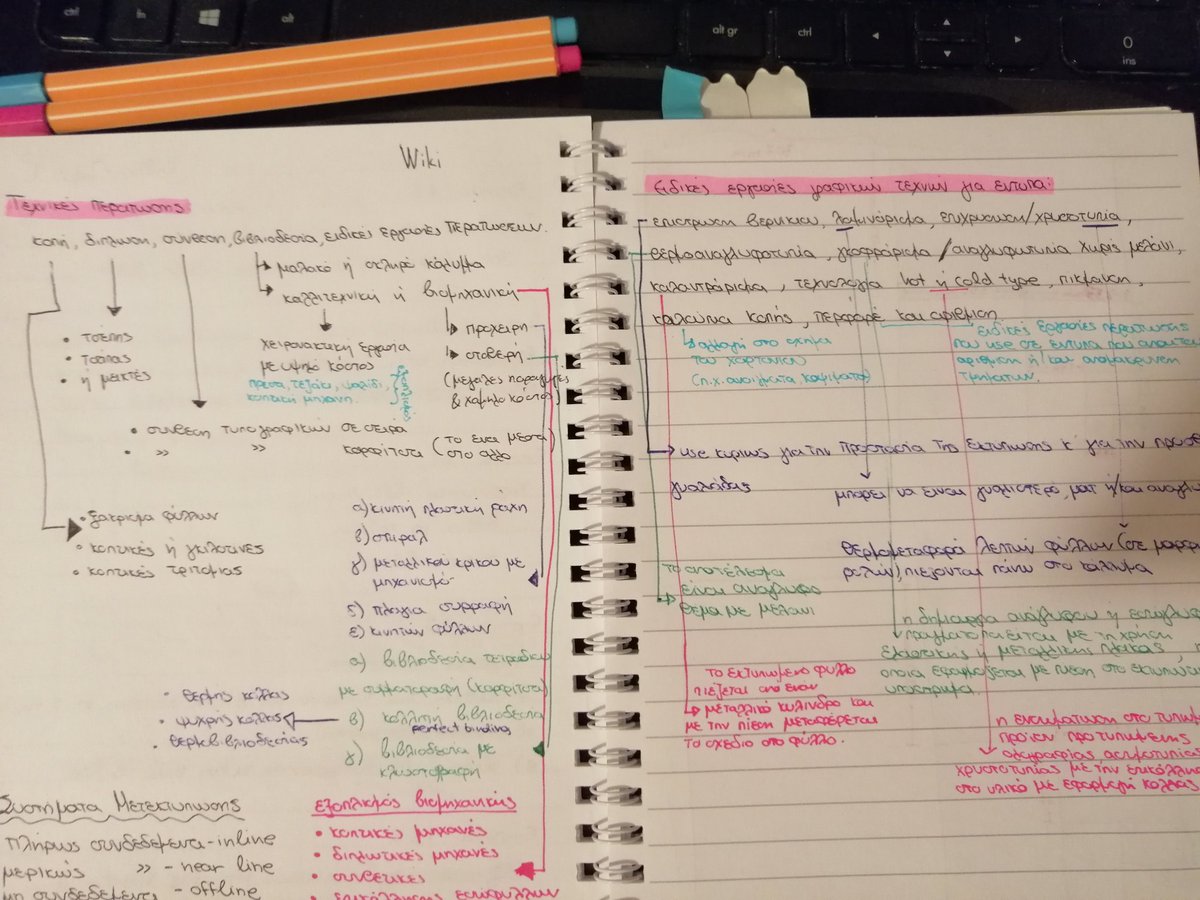 ctrl
alt
alt gr
ctrl
0
ins
Wiki
Τεχνικές Περάτωσης
κοπή, δίπλωση, σύνθεση, βιβλιοδεσία, ειδικές εργασίες Περατώσεων.
μαλακό ή σκληρό κάλυμμα
καλλιτεχνική ή βιομηχανική
• τσέπης
• τσάπας
• ή μεικτές
χειρονακτική εργασία
με υψηλό κόστος
πρέσα, τεζάκι, ψαλίδι,
κοπτική μηχανή.
εξοπλισμός
πρόχειρη
σταθερή
(μεγάλες παραγωγές
& χαμηλό κόστος)
• σύνθεση τυπογραφικών σε σειρά
• » » καρφίτσα (το ένα μέσα
στο άλλο
• ξάκρισμα φύλλων
• κοπτικές ή γκιλοτίνες
• κοπτικές τρίτομας
α) κινητή πλαστική ράχη
β) σπιράλ
γ) μεταλλικού κρίκου με
μηχανισμό
ς) πλάγια συρραφή
ε) κινητών φύλλων
α) βιβλιοδεσία τετραδίου
με συρματοραφή (καρφίτσα)
β) κολλητή βιβλιοδεσία
perfect binding
γ) βιβλιοδεσία με
κλωστοραφή
• θερμής κόλλας
• ψυχρής κόλλας
• θερμοβιβλιοδεσίας
Συστήματα Μετεκτύπωσης
πλήρως συνδεδεμένα - inline
μερικώς » - near line
μη συνδεδεμένα - offline
εξοπλισμός βιομηχανικής
• κοπτικές μηχανές
• διπλωτικές μηχανές
• συνθετικές
• επικόλλησης εσωφύλλων
Ειδικές εργασίες γραφικών τεχνών για έντυπα:
επίστρωση βερνικιού, λαμινάρισμα, επιχρύσωση/χρυσοτυπία,
θερμοαναγλυφοτυπία, γκοφράρισμα/αναγλυφοτυπία χωρίς μελάνι,
καλαντράρισμα, τεχνολογία hot ή cold type, πίκμανση,
καλούπια κοπής, περφορέ και αρίθμιση
αλλαγή στο σχήμα
του χαρτονιού
(π.χ. ανοίγματα κοψίματα)
ειδικές εργασίες περάτωσης
που use σε έντυπα που απαιτούν
αρίθμιση ή/και απομάκρυνση
τμημάτων.
use κυρίως για την προστασία της εκτύπωσης κ' για την
γυαλάδας
μπορεί να είναι γυαλιστερό, ματ ή/και
θερμομεταφορά λεπτών φύλλων (σε μορφή
ρολών), πιέζονται πάνω στο κάλυμμα
το αποτέλεσμα
είναι ανάγλυφο
θέμα με μελάνι
η δημιουργία ανάγλυφου ή
πραγματοποιείται με τη χρήση
ελαστικής ή μεταλλικής πλάκας,
οποία εφαρμόζεται με πίεση στο
υπόστρωμα.
το εκτυπωμένο φύλλο
πιέζεται από έναν
μεταλλικό κύλινδρο και
με την πίεση μεταφέρεται
το σχέδιο στο φύλλο.
η ενσωμάτωση στο
προϊόν προτυπωμένης
ολογραφίας
χρυσοτυπίας με την
στο υλικό με εφαρμογή κόλλας